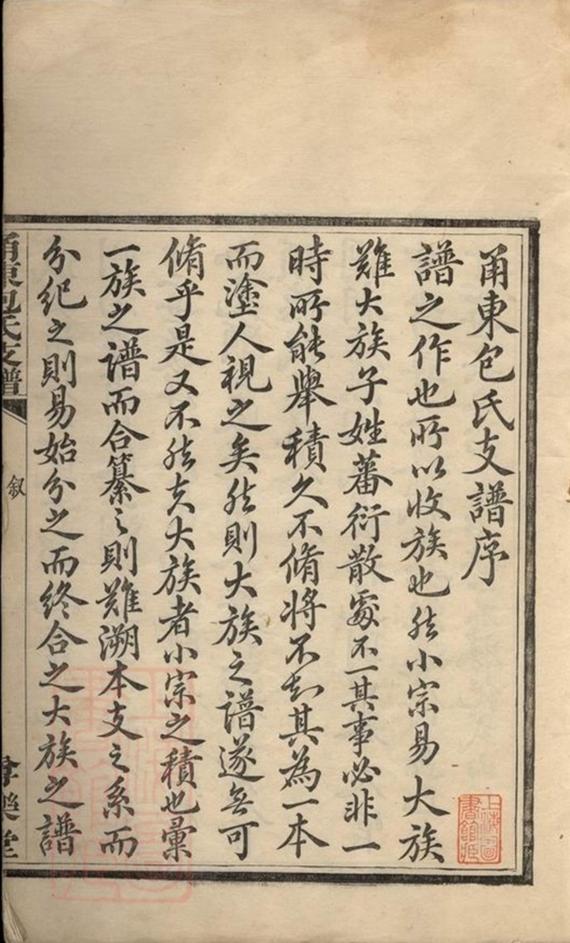 甬東包氏支譜序
譜之作也所以收族也然小宗易大族
難大族子姓蕃衍散處不一其事必非一
時所能舉積久不脩將不知其為一本
而塗人視之矣然則大族之譜遂無可
脩乎是又不然夫大族者小宗之積也彙
一族之譜而合纂之則難溯本支之系而
分紀之則易始分之而終合之大族之譜
甬東包氏支譜
叙
樂堂
上海圖
書館藏